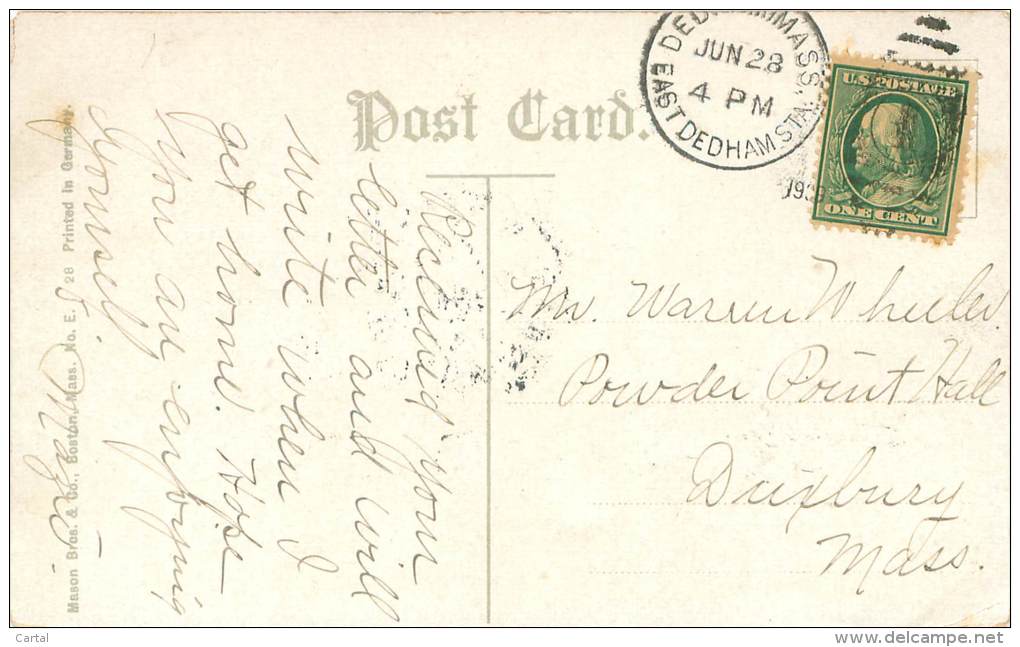 Post Card.
DEDHAM MASS.
JUN 28
4 PM
EAST DEDHAM STA.
U.S. POSTAGE
ONE CENT
Received your
letter and will
write when I
get home. Hope
you are enjoying
yourself.
Mr. Warren Wheeler.
Powder Point Hall
Duxbury
Mass.
Mason Bros. & Co., Boston, Mass. No. E. 28 Printed in Germany.
Cartal
www.delcampe.net